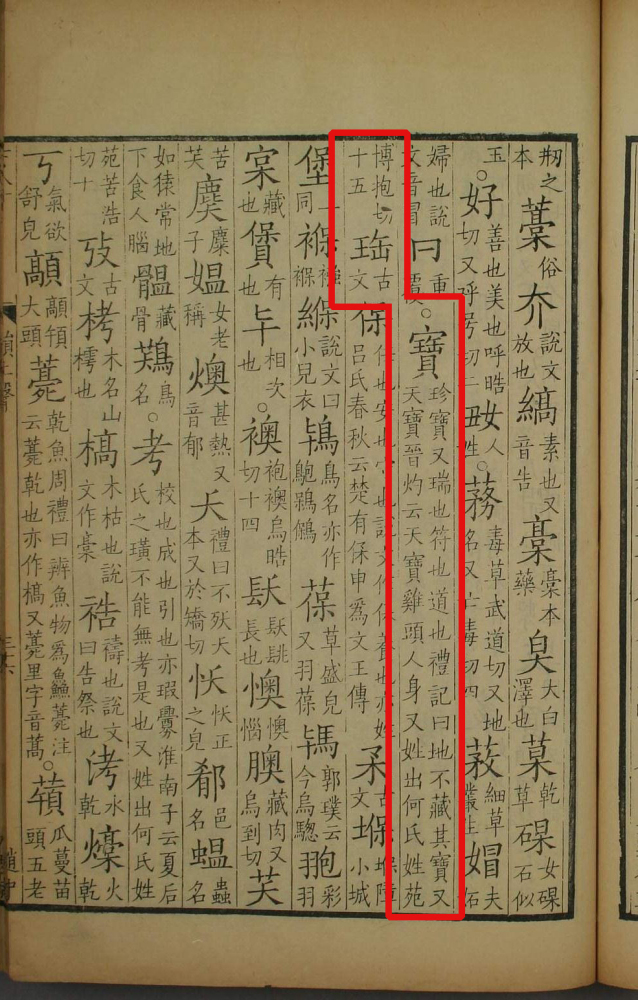 之本藁俗夰說文放也縞素也又音告稾稾本藥臭大白澤也菒乾草碯女碯石似
玉。好善也美也呼晧切又呼号切二𡚽人姓。蓩毒草武道切又地名又亡毒切四䓮細草叢生媢夫妬
婦也說文音冒冃重覆。寶珍寶又瑞也符也道也禮記曰地不藏其寶又天寶晉灼云天寶雞頭人身又姓出何氏姓苑
博抱切十五珤古文保任也安也守也說文作保養也亦姓呂氏春秋云楚有保申爲文王傅古文堢堢障小城
堡上同褓襁褓緥說文曰小兒衣鴇鳥名亦作葆草盛皃又羽葆郭璞云今烏驄彩羽
藏也有也相次也。襖袍襖烏晧切十四镺镺長也懊懊惱藏肉又烏到切芺
苦芺麌麋子媼女老稱燠甚熱又音郁夭禮曰不殀夭本又於矯切正之皃邑名蝹蟲名
如猿常地下食人腦藏骨鳥名。考校也成也引也亦瑕釁淮南子云夏后氏之璜不能無考是也又姓出何氏姓
苑苦浩切十攷古文栲木名山樗也槁木枯也說文作槀祰禱也說文曰告祭也洘水乾燺火乾
丂氣欲舒皃大頭薧乾魚周禮曰辨魚物爲鱻薧注云薧乾也亦作槁又薧里字音蒿。瓜蔓苗頭五老